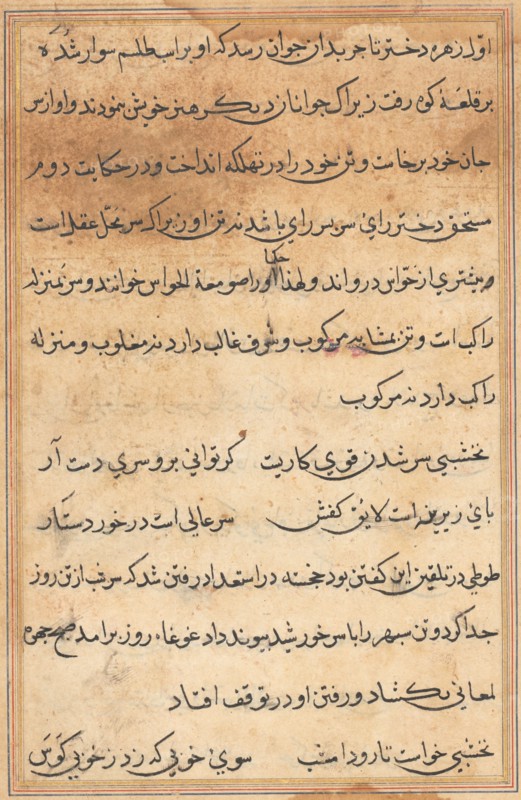 اول زهره دختر تاجر بدان جوان رسد که او بر اسب طلسم سوار شده
بر قلعهٔ کوه رفت زیراک جوانان دیگر هنر خویش نمودند و او از سر
جان خود برخاست و تن خود را در تهلکه انداخت و در حکایت دوم
مستحق دختر رای سر پسر رای باشد نه تن او زیراک سر محل عقل است
و بیشتری از حواس درو اند و لهذا حکما او را صومعة الحواس خوانند و سر بمنزله
راکب است و تن بمشابه مرکوب و شرف غالب دارد نه مغلوب و منزله
راکب دارد نه مرکوب
نخشبی سر شدن قوی کاریست گر توانی برو سری دست آر
پای زیرین است لایق کفش سر عالی است در خور دستار
طوطی در تلقین این گفتن بود خجسته در استعداد رفتن شد که سر شب از تن روز
جدا کرد و تن سپهر را با سر خورشید پیوند داد غوغاء روز برآمد صبح چهره
لمعانی بکشاد و رفتن او در توقف افتاد
نخشبی خواست تا رود امشب سوی خوبی که زد ز خوبی کوس